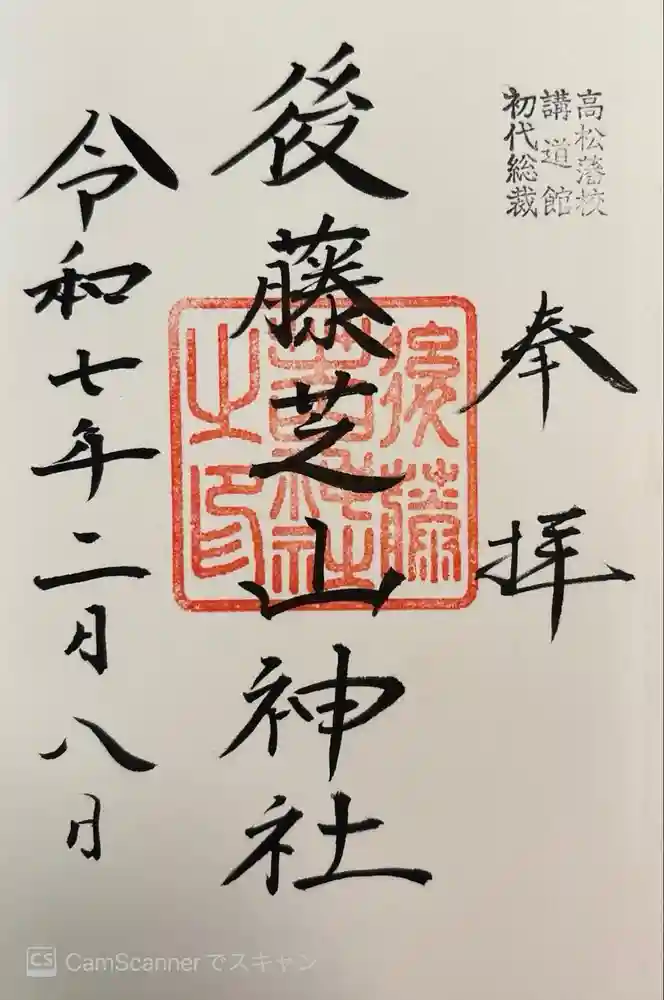 高松藩校
講道館
初代総裁
奉拝
後藤芝山神社
後藤
芝山神社
之印
令和七年二月八日
CS CamScannerでスキャン